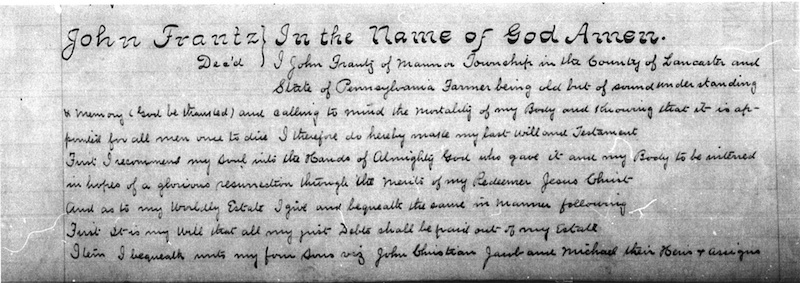 John Frantz } In the Name of God Amen.
Dec'd } I John Frantz of Mannor Township in the County of Lancaster and
State of Pennsylvania Farmer being old but of sound understanding
& Memory (God be thanked) and calling to mind the mortality of my Body and Knowing that it is ap-
pointed for all men once to die I therefore do hereby make my last Will and Testament
First I recommend my Soul into the Hands of Almighty God who gave it and my Body to be interred
in hopes of a glorious resurrection through the Merits of my Redeemer Jesus Christ
And as to my Worldly Estate I give and bequeath the same in Manner following
First It is my Will that all my just Debts shall be paid out of my Estate
Item I bequeath unto my four Sons viz John Christian Jacob and Michael their Heirs & assigns